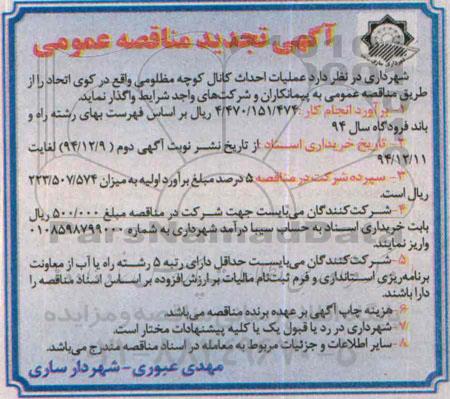 آگهی تجدید مناقصه عمومی
شهرداری ساری
شهرداری در نظر دارد عملیات احداث کانال کوچه مظلومی واقع در کوی اتحاد را از
طریق مناقصه عمومی به پیمانکاران و شرکت‌های واجد شرایط واگذار نماید.
۱- برآورد انجام کار: ۴/۴۷۰/۱۵۱/۴۷۴ ریال بر اساس فهرست بهای رشته راه و
باند فرودگاه سال ۹۴
۲- تاریخ خریداری اسناد: از تاریخ نشر نوبت آگهی دوم (۹۴/۱۲/۹) لغایت
۹۴/۱۲/۱۱
۳- سپرده شرکت در مناقصه ۵ درصد مبلغ برآورد اولیه به میزان ۲۲۳/۵۰۷/۵۷۴
ریال است.
۴- شرکت‌کنندگان می‌بایست جهت شرکت در مناقصه مبلغ ۵۰۰/۰۰۰ ریال
بابت خریداری اسناد به حساب سیبا درآمد شهرداری به شماره ۰۱۰۸۵۹۸۷۹۹۰۰۰
واریز نمایند.
۵- شرکت‌کنندگان می‌بایست حداقل دارای رتبه ۵ رشته راه یا آب از معاونت
برنامه‌ریزی استانداری و فرم ثبت‌نام مالیات بر ارزش‌افزوده بر اساس اسناد مناقصه را
دارا باشند.
۶- هزینه چاپ آگهی بر عهده برنده مناقصه می‌باشد.
۷- شهرداری در رد یا قبول یک یا کلیه پیشنهادات مختار است.
۸- سایر اطلاعات و جزئیات مربوط به معامله در اسناد مناقصه مندرج می‌باشد.
مهدی عبوری - شهردار ساری